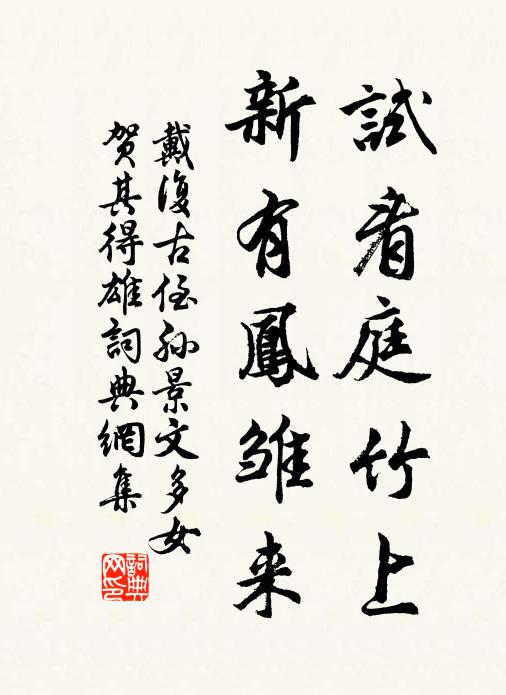 試看庭竹上
新有鳳雛来
戴復古侄孙景文多女
贺其得雄詞典網集
詞典
网印